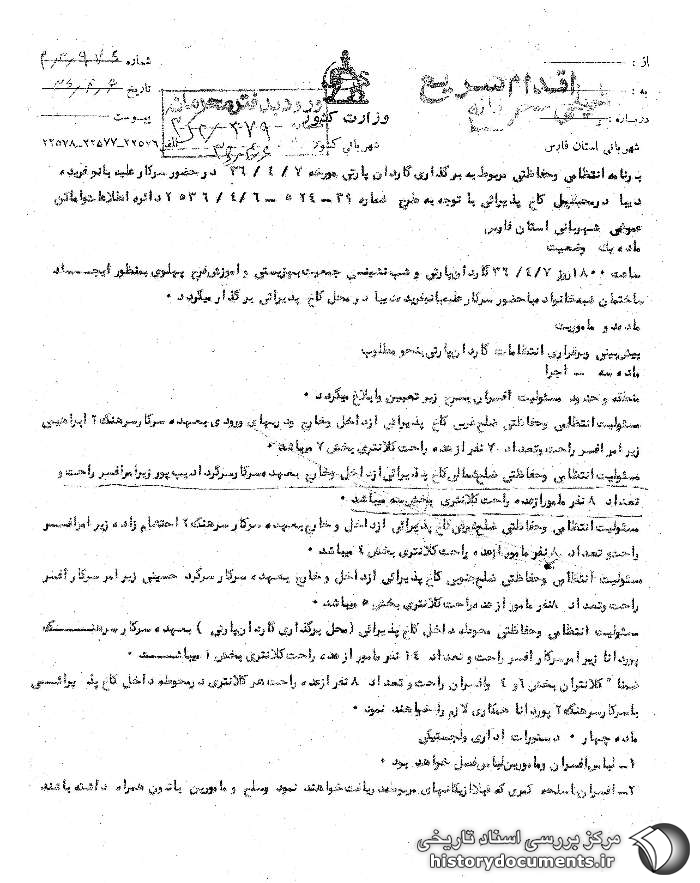 از :
شماره
به :
اقدام سریع
تاریخ
درباره :
خیلی محرمانه
وزارت کشور
ورود بدفتر محرمانه
پیوست
شهربانی استان فارس
شهربانی کشور
تلفن ۲۲۵۷۶ـ۲۲۵۷۷ـ۲۲۵۷۸
برنامه انتظامی وحفاظتی مربوط به برگذاری گاردن پارتی مورخه ۷ / ۴ / ۳۶ در حضور سرکار علیه بانو فریده
دیبا در کاخ پذیرائی با توجه به طرح شماره ۳۹ – ۲۴ – ۵ – ۶ / ۴ / ۲۵۳۶ دائره اطلاعات واماکن
عمومی شهربانی استان فارس
ماده یک وضعیت
ساعت ۱۸۰۰ روز ۷ / ۴ / ۳۶ گاردن پارتی و شب نشینی جمعیت بهزیستی و آموزش فرح پهلوی بمنظور ایجاد
ساختمان با حضور سرکار علیه بانو فریده دیبا در محل کاخ پذیرائی برگذار میگردد ۰
ماده دو ماموریت
پیش بینی وبرقراری انتظامات گاردن پارتی بنحو مطلوب
ماده سه – اجرا
منطقه و حدود مسئولیت افسران بشرح زیر تعیین وابلاغ میگردد ۰
مسئولیت انتظامی وحفاظتی ضلع غربی کاخ پذیرائی از داخل وخارج ودربهای ورودی بعهده سرکار سرهنگ ۲ ابراهیمی
زیر امر افسر راحت وتعداد ۷۰ نفر از عده راحت کلانتری بخش ۷ میباشد ۰
مسئولیت انتظامی وحفاظتی ضلع شمالی کاخ پذیرائی از داخل وخارج بعهده سرکار سرگرد ادیب پور زیر امر افسر راحت و
تعداد ۸ نفر مامور از عده راحت کلانتری بخش سه میباشد ۰
مسئولیت انتظامی وحفاظتی ضلع شرقی کاخ پذیرائی از داخل و خارج بعهده سرکار سرهنگ ۲ احتشام زاده زیر امر افسر
راحت و تعداد ۸ نفر مامور از عده راحت کلانتری بخش ۴ میباشد ۰
مسئولیت انتظامی وحفاظتی ضلع جنوبی کاخ پذیرائی از داخل و خارج بعهده سرکار سرگرد حسینی زیر امر سرکار افسر
راحت وتعداد ۸ نفر مامور از عده راحت کلانتری بخش ۵ میباشد ۰
مسئولیت انتظامی وحفاظتی محوطه داخل کاخ پذیرائی (محل برگذاری گاردن پارتی ) بعهده سرکار سرهنگ
پوردانا زیر امر سرکار افسر راحت و تعداد ۱۴ نفر مامور از عده راحت کلانتری بخش ۱ میباشد ۰
ضمنا" کلانتران بخش ۶ و ۴ وافسران راحت و تعداد ۸ نفر از عده راحت هر کلانتری در محوطه داخل کاخ پذیرائی
با سرکار سرهنگ ۲ پوردانا همکاری لازم را خواهند نمود ۰
ماده چهار ۰ دستورات اداری ولجستیکی
۱– لباس افسران ومامورین لباس فصل خواهد بود ۰
۲– افسران اسلحه کمری که قبلا از یگانهای مربوطه دریافت خواهند نمود مسلح و مامورین باتون همراه داشته باشند
مرکز بررسی اسناد تاریخی
historydocuments.ir